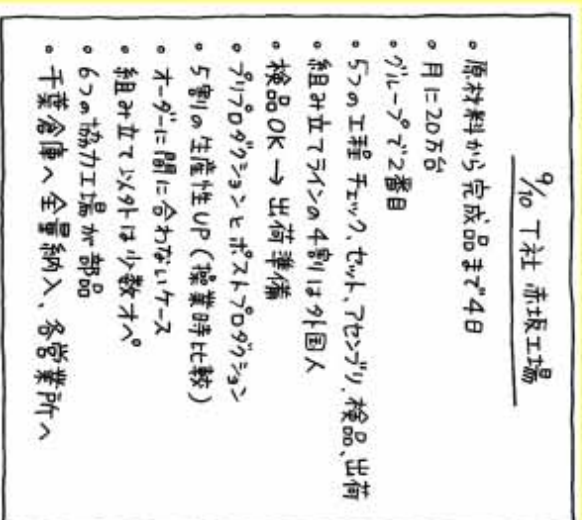 9/10 T社 赤坂工場
・原材料から完成品まで4日
・月に20万台
・グループで2番目
・5つの工程 チェック、セット、アセンブリ、検品、出荷
・組み立てラインの4割は外国人
・検品OK → 出荷準備
・プリプロダクションとポストプロダクション
・5割の生産性UP(操業時比較)
・オーダーに間に合わないケース
・組み立て以外は少数オペ
・6つの協力工場が部品
・千葉倉庫へ全量納入、各営業所へ